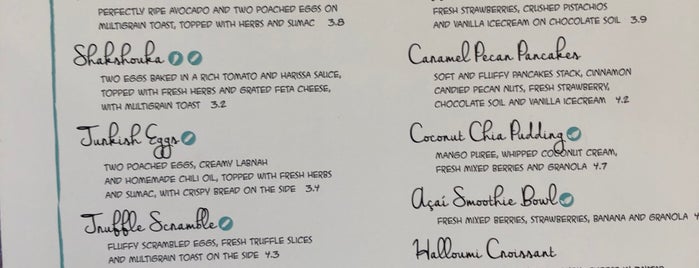 PERFECTLY RIPE AVOCADO AND TWO POACHED EGGS ON
MULTIGRAIN TOAST, TOPPED WITH HERBS AND SUMAC 3.8
Shakshouka
TWO EGGS BAKED IN A RICH TOMATO AND HARISSA SAUCE,
TOPPED WITH FRESH HERBS AND GRATED FETA CHEESE,
WITH MULTIGRAIN TOAST 3.2
Turkish Eggs
TWO POACHED EGGS, CREAMY LABNAH
AND HOMEMADE CHILI OIL, TOPPED WITH FRESH HERBS
AND SUMAC, WITH CRISPY BREAD ON THE SIDE 3.4
Truffle Scramble
FLUFFY SCRAMBLED EGGS, FRESH TRUFFLE SLICES
AND MULTIGRAIN TOAST ON THE SIDE 4.3
FRESH STRAWBERRIES, CRUSHED PISTACHIOS
AND VANILLA ICECREAM ON CHOCOLATE SOIL 3.9
Caramel Pecan Pancakes
SOFT AND FLUFFY PANCAKES STACK, CINNAMON
CANDIED PECAN NUTS, FRESH STRAWBERRY,
CHOCOLATE SOIL AND VANILLA ICECREAM 4.2
Coconut Chia Pudding
MANGO PUREE, WHIPPED COCONUT CREAM,
FRESH MIXED BERRIES AND GRANOLA 4.7
Açaí Smoothie Bowl
FRESH MIXED BERRIES, STRAWBERRIES, BANANA AND GRANOLA
Halloumi Croissant